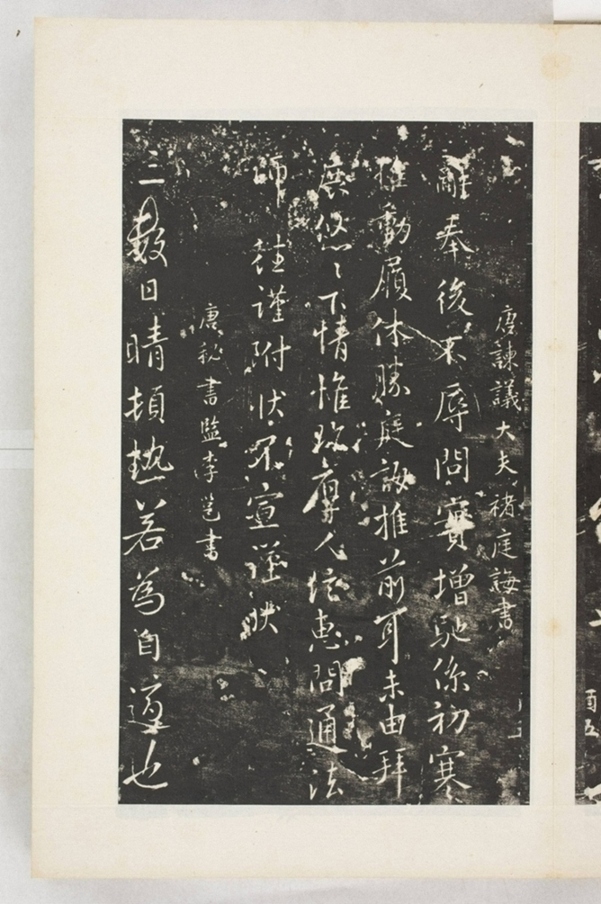 唐諫議大夫褚庭誨書
離奉後不辱問實增馳係初寒
惟動履休勝庭誨推前耳未由拜
展悠〻下情惟珍厚人信惠問通法
師赴謹附狀不宣謹狀
唐秘書監李邕書
三數日晴頓熱若為自適也